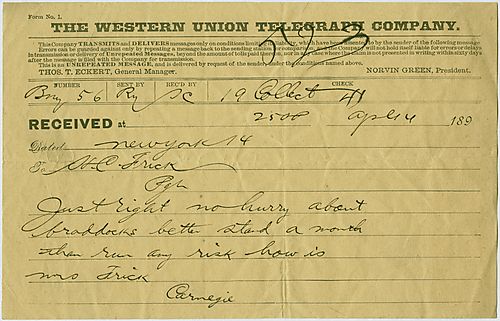 Form No. 1.
THE WESTERN UNION TELEGRAPH COMPANY.
This Company TRANSMITS and DELIVERS messages only on conditions limiting its liability, which have been assented to by the sender of the following message.
Errors can be guarded against only by repeating a message back to the sending station for comparison, and the Company will not hold itself liable for errors or delays
in transmission or delivery of Unrepeated Messages, beyond the amount of tolls paid thereon, nor in any case where the claim is not presented in writing within sixty days
after the message is filed with the Company for transmission.
This is an UNREPEATED MESSAGE, and is delivered by request of the sender, under the conditions named above.
THOS. T. ECKERT, General Manager. NORVIN GREEN, President.
NUMBER SENT BY REC'D BY CHECK
56 Ry 19 Collect
RECEIVED at 250P April 14 189
Dated New York 14
To H. C. Frick
Pgh
Just right no hurry about
braddocks better stand a month
than run any risk how is
mrs Frick
Carnegie